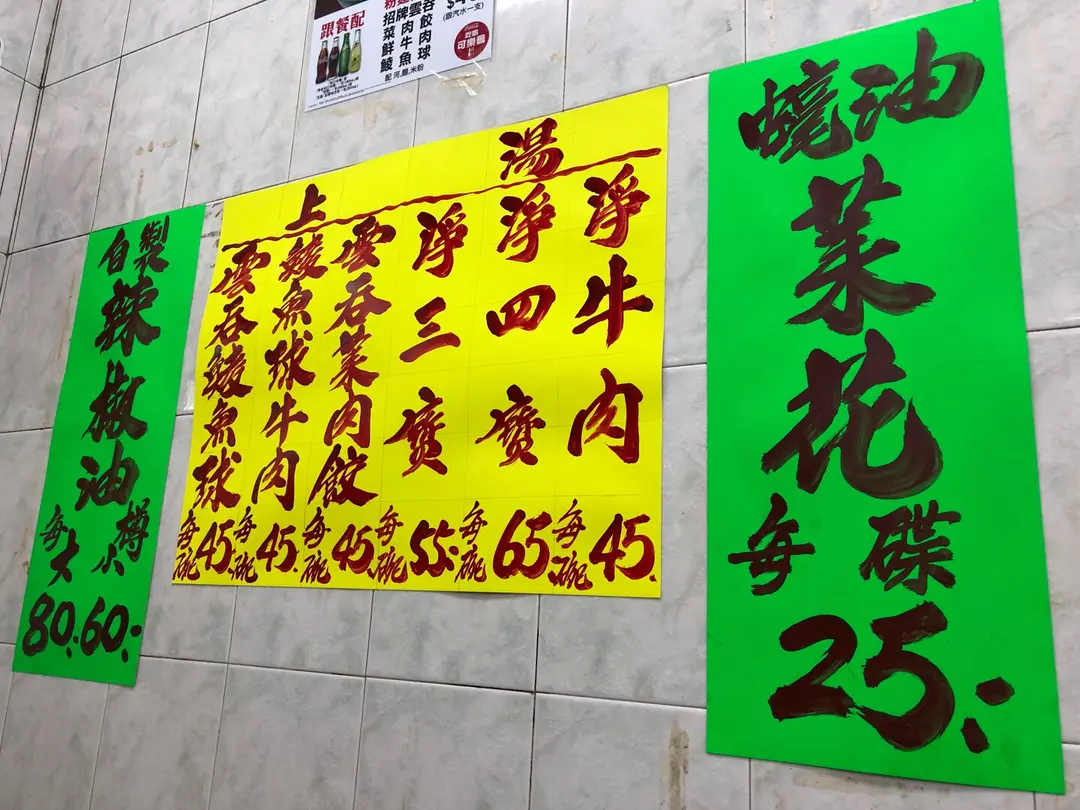 跟餐配
招牌雲吞
菜肉餃
鮮牛肉
鯪魚球
配 河,麵,米粉
(跟汽水一支)
自製
辣
椒
油
每樽
大 小
80.- 60.-
上湯
雲吞鯪魚球 每碗 45.
鯪魚球牛肉 每碗 45.
雲吞菜肉餃 每碗 45.
淨三寶 每碗 55.-
淨四寶 每碗 65.
淨牛肉 每碗 45.
蠔油
菜
花
每碟
25.-